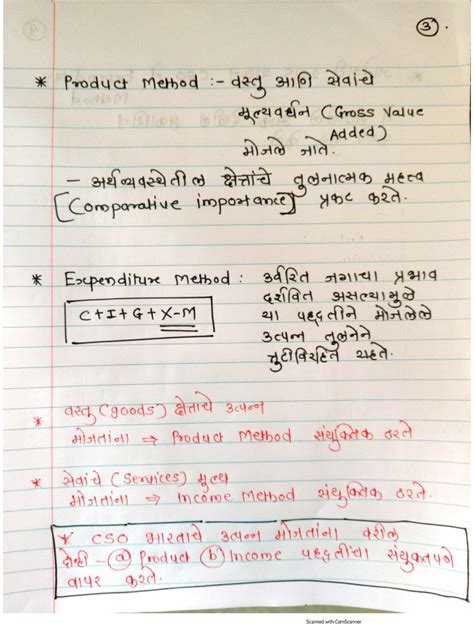 3
* Product Method :- वस्तु आणि सेवांचे
मूल्यवर्धन (Gross Value
Added)
मोजले जाते.
- अर्थव्यवस्थेतील क्षेत्रांचे तुलनात्मक महत्व
[Comparative importance] प्रकट करते.
* Expenditure Method : उर्वरित जगाचा प्रभाव
C+I+G+X-M
दर्शवित असल्यामुळे
या पद्धतीने मोजलेले
उत्पन्न तुलनेने
त्रुटीविरहित राहते.
* वस्तु (goods) क्षेत्राचे उत्पन्न
मोजतांना ⇒ Product Method संयुक्तिक ठरते
* सेवांचे (Services) मूल्य
मोजतांना ⇒ Income Method संयुक्तिक ठरते.
* CSO भारताचे उत्पन्न मोजतांना वरील
दोन्ही - (a) Product (b) Income पद्धतींचा संयुक्तपणे
वापर करते.
Scanned with CamScanner